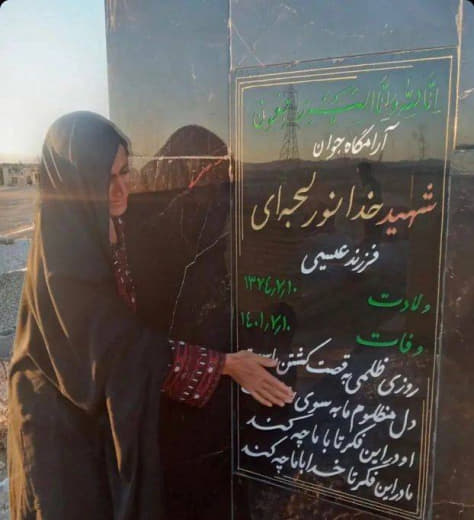 انا لله و انا الیه راجعون
آرامگاه جوان
شهید خدانور لجه‌ای
فرزند عیسی
ولادت ۱۳۷۴٫۷٫۱۰
وفات ۱۴۰۱٫۷٫۱۰
روزی ظلمی به قصد کشتن
دل مظلوم ما به سوی
او در این فکر تا با ما چه کند
ما در این فکر تا خدا با ما چه کند